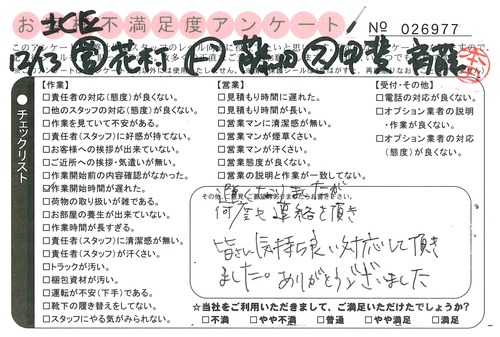 お客様不満足度アンケート
No 026977
北区
12/13 花村 藤田 甲斐 斎藤
チェックリスト
【作業】
□責任者の対応(態度)が良くない。
□他のスタッフの対応(態度)が良くない。
□作業を見ていて不安がある。
□責任者(スタッフ)に好感が持てない。
□お客様への挨拶が出来ていない。
□ご近所への挨拶・気遣いが無い。
□作業開始前の内容確認がなかった。
☑作業開始時間が遅れた。
□荷物の取り扱いが雑である。
□お部屋の養生が出来ていない。
□作業時間が長すぎる。
□責任者(スタッフ)に清潔感が無い。
□責任者(スタッフ)が汗くさい。
□トラックが汚い。
□梱包資材が汚い。
□運転が不安(下手)である。
□靴下の履き替えをしてない。
□スタッフにやる気がみられない。
【営業】
□見積もり時間に遅れた。
□見積もり時間が長い。
□営業マンに清潔感が無い。
□営業マンが煙草くさい。
□営業マンが汗くさい。
□営業態度が良くない。
□営業の説明と作業が一致してない。
【受付・その他】
□電話の対応が良くない。
□オプション業者の説明・作業が良くない。
□オプション業者の対応(態度)が良くない。
遅くなりましたが
何度も連絡を頂き
皆さん気持ち良い対応して頂き
ました。ありがとうございました
☆当社をご利用いただきまして、ご満足いただけたでしょうか?
□不満 □やや不満 □普通 □やや満足 □満足